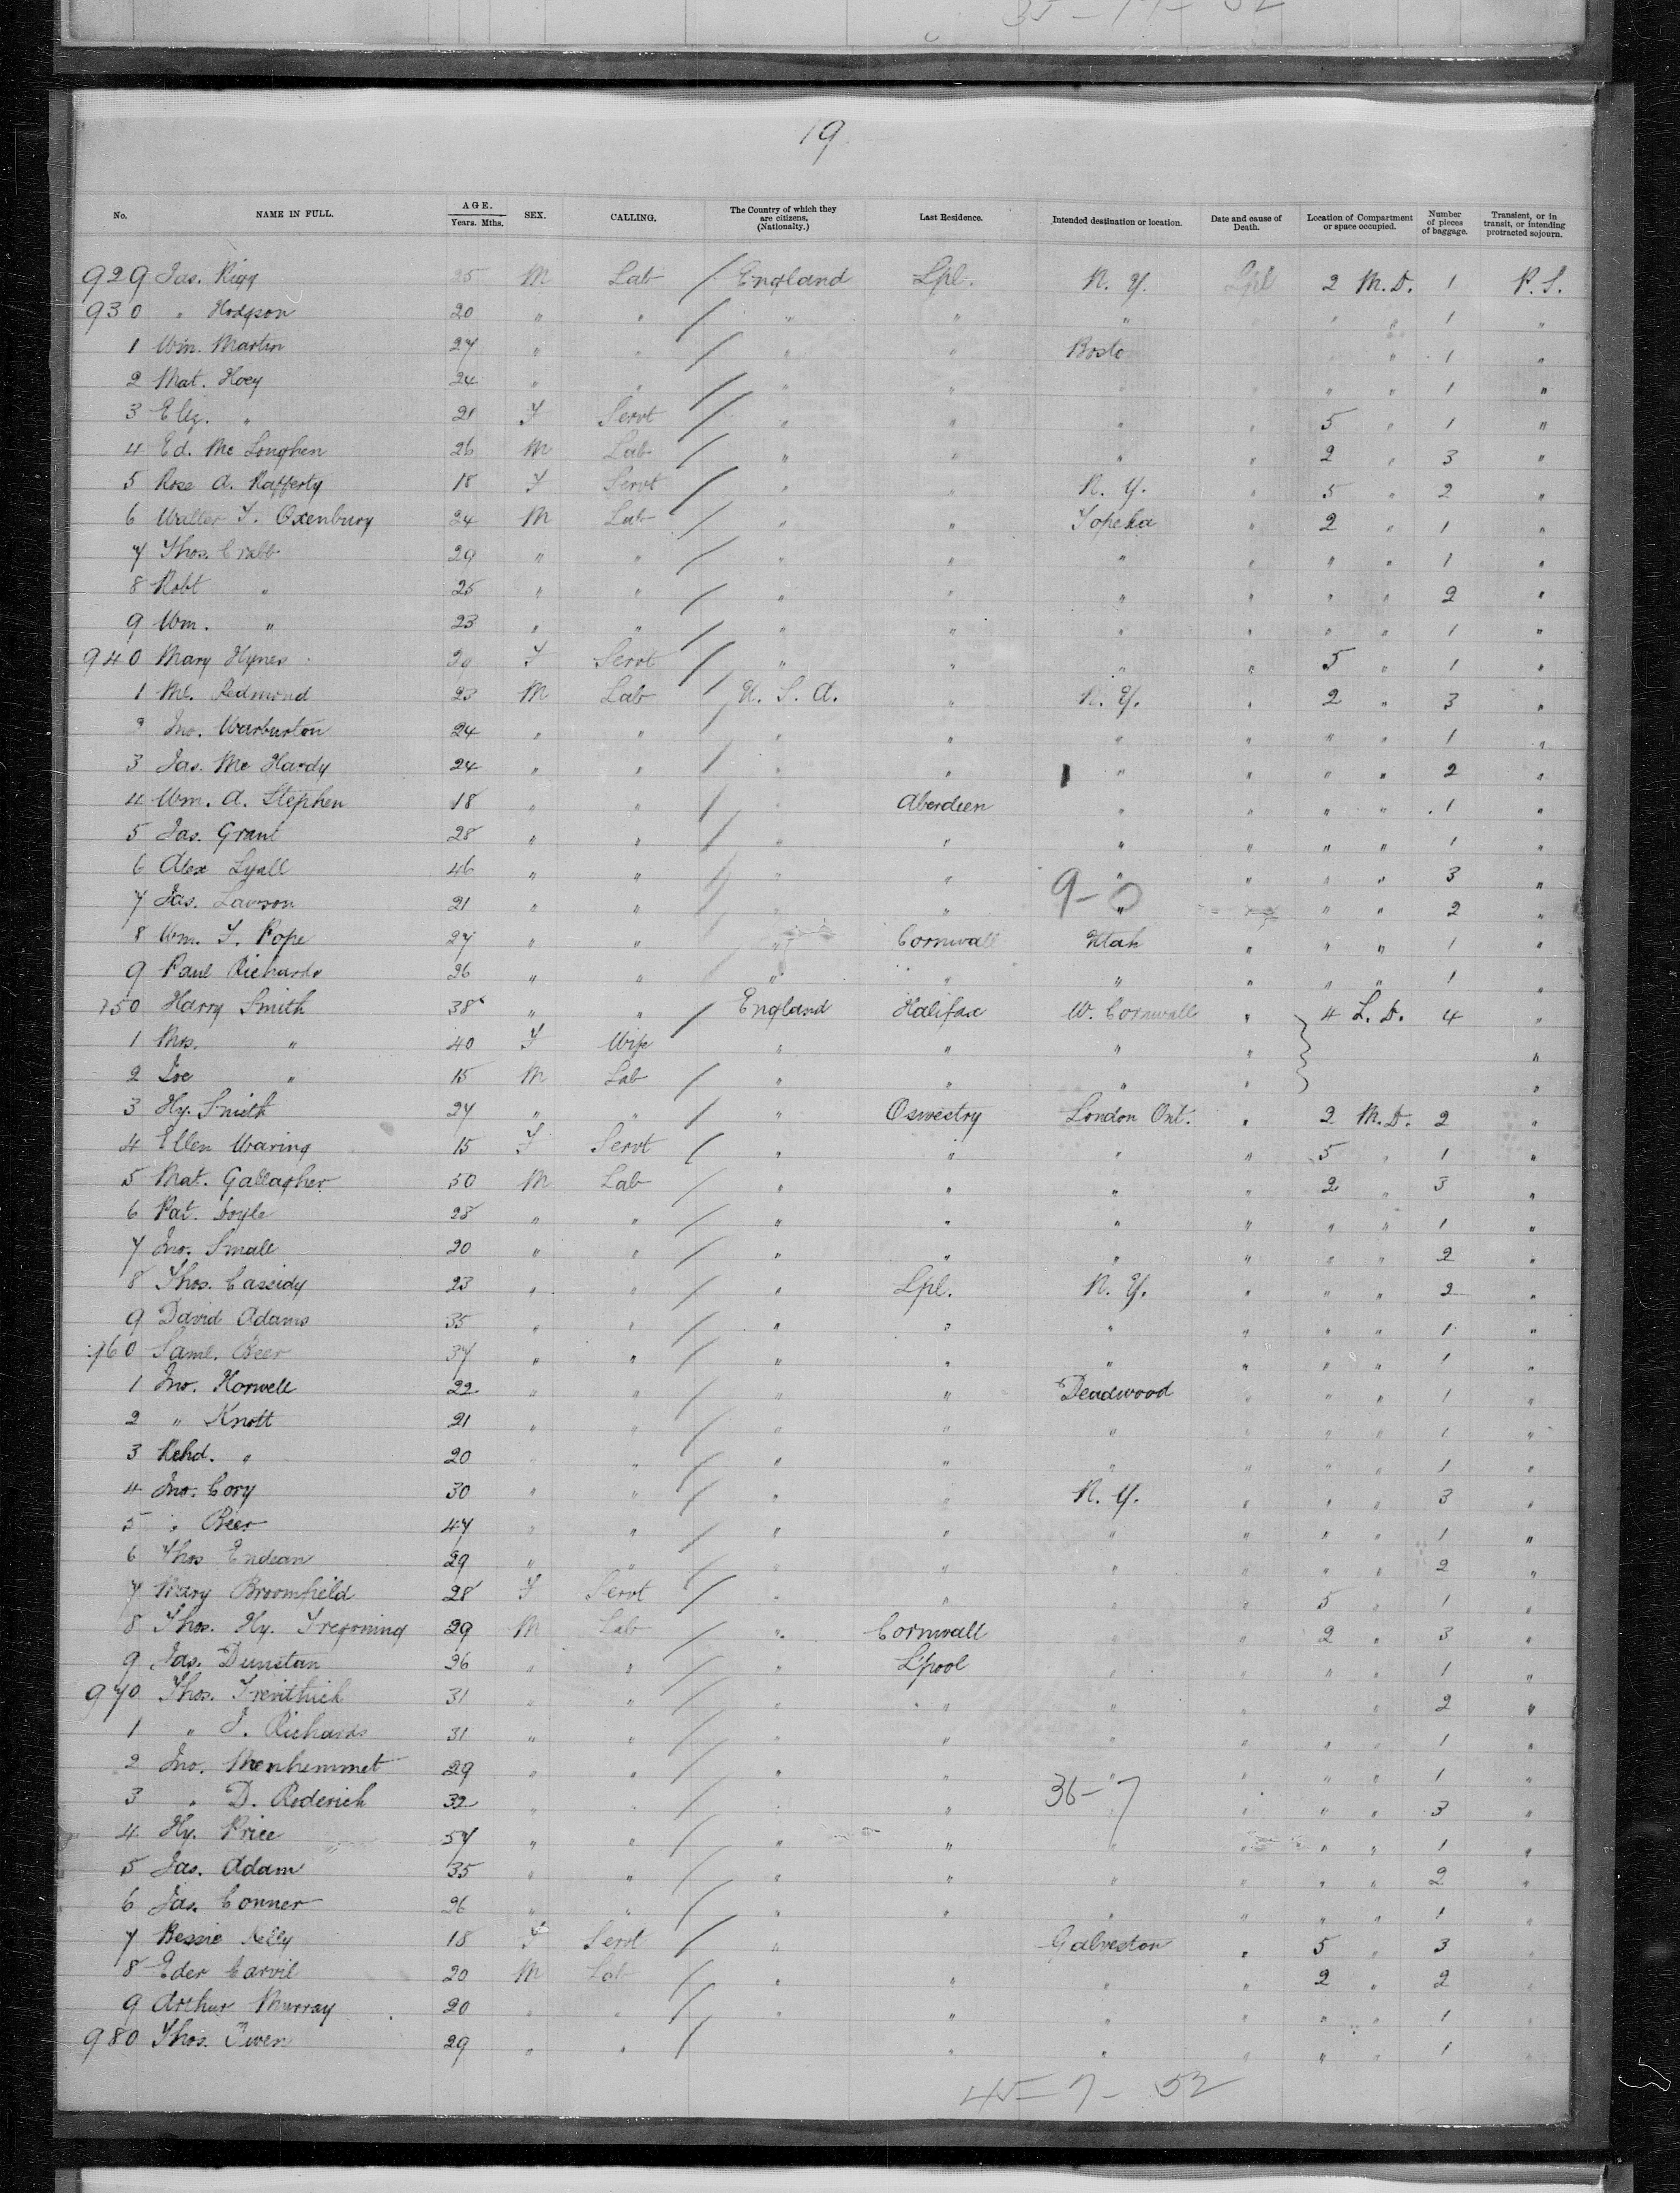 19
No. NAME IN FULL. AGE. Years. Mths. SEX. CALLING. The Country of which they are citizens, (Nationalty.) Last Residence. Intended destination or location. Date and cause of Death. Location of Compartment or space occupied. Number of pieces of baggage. Transient, or in transit, or intending protracted sojourn.
929 Jas. Rigg 25 M Lab / England Lpl. N. Y. Lpl 2 M. D. 1 P. S.
930 " Hodgson 20 " " / " " " " " 1 "
1 Wm. Martin 27 " " / " " Bosto " 1 "
2 Mat. Hoey 24 " " / " " " " 1 "
3 Eliz. " 21 F Servt / " " " " 5 " 1 "
4 Ed. Mc Loughen 26 M Lab / " " " " 2 " 3 "
5 Rose A. Rafferty 18 F Servt / " " N. Y. " 5 " 2 "
6 Walter F. Oxenbury 24 M Lab / " " Topeka " 2 " 1 "
7 Thos. Crabb 29 " " / " " " " " " 1 "
8 Robt " 25 " " / " " " " " " 2 "
9 Wm. " 23 " " / " " " " " " 1 "
940 Mary Hynes 20 F Servt / " " " " 5 " 1 "
1 Ml. Redmond 23 M Lab / U. S. A. " N. Y. " 2 " 3 "
2 Jno. Warburton 24 " " / " " " " " " 1 "
3 Jas. Mc Hardy 24 " " / " " " " " " 2 "
4 Wm. A. Stephen 18 " " / " Aberdeen " " " " 1 "
5 Jas. Grant 28 " " / " " " " " " 1 "
6 Alex Lyall 46 " " / " " " " " " 3 "
7 Jas. Lawson 21 " " / " " 9-0 " " " 2 "
8 Wm. J. Pope 27 " " / " Cornwall Utah " " " 1 "
9 Paul Richards 26 " " " " " " " " 1 "
950 Harry Smith 38 " " / England Halifax W. Cornwall " 4 L. D. 4 "
1 Mrs. " 40 F Wife " " " " "
2 Joe " 15 M Lab / " " " " "
3 Hy. Smith 27 " " / " Oswestry London Ont. " 2 M. D. 2 "
4 Ellen Waring 15 F Servt / " " " " 5 " 1 "
5 Mat. Gallagher 50 M Lab / " " " " 2 " 3 "
6 Pat. Doyle 28 " " / " " " " " " 1 "
7 Jno. Small 20 " " / " " " " " " 2 "
8 Thos. Cassidy 23 " " / " Lpl. N. Y. " " " 2 "
9 David Adams 35 " " / " " " " " " 1 "
960 Saml. Beer 37 " " / " " " " " " 1 "
1 Jno. Horwell 22 " " / " " Deadwood " " " 1 "
2 " Knott 21 " " / " " " " " " 1 "
3 Rchd. " 20 " " / " " " " " " 1 "
4 Jno. Cory 30 " " / " " N. Y. " " " 3 "
5 " Beer 47 " " / " " " " " " 1 "
6 Thos Endean 29 " " / " " " " " " 2 "
7 Mary Broomfield 28 F Servt / " " " " 5 " 1 "
8 Thos. Hy. Tregoning 29 M Lab / " Cornwall " " 2 " 3 "
9 Jas. Dunstan 26 " " / " L'pool " " " " 1 "
970 Thos. Trevithick 31 " " / " " " " " 2 "
1 " J. Richards 31 " " / " " " " " " 1 "
2 Jno. Menhemmet 29 " " / " " " " " " 1 "
3 " D. Roderick 32 " " / " " 36-7 " " " 3 "
4 Hy. Price 57 " " / " " " " " " 1 "
5 Jas. Adam 35 " " / " " " " " " 2 "
6 Jas. Conner 26 " " / " " " " " " 1 "
7 Bessie Kelly 18 F Servt / " Galveston " 5 " 3 "
8 Eder Carvil 20 M Lab / " " " " 2 " 2 "
9 Arthur Murray 20 " " / " " " " " " 1 "
980 Thos. Owen 29 " " / " " " " " 1 "
45-7-52